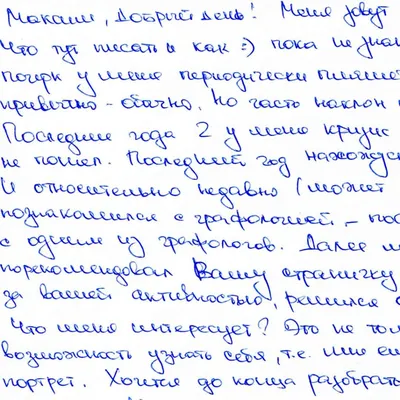 Максим, Добрый день! Меня зовут
Что тут писать и как :) пока не знаю
почерк у меня периодически пляшет
привычно - обычно. Но часто наклон
Последние года 2 у меня кризис
не пошел. Последний год нахожусь
И относительно недавно (может
познакомился с графологией –
с одним из графологов. Далее
порекомендовал Вашу страничку
за вашей активностью, решился
Что меня интересует? Это не тол
возможность узнать себя, т.е. мне
портрет. Хочется до конца разобрать